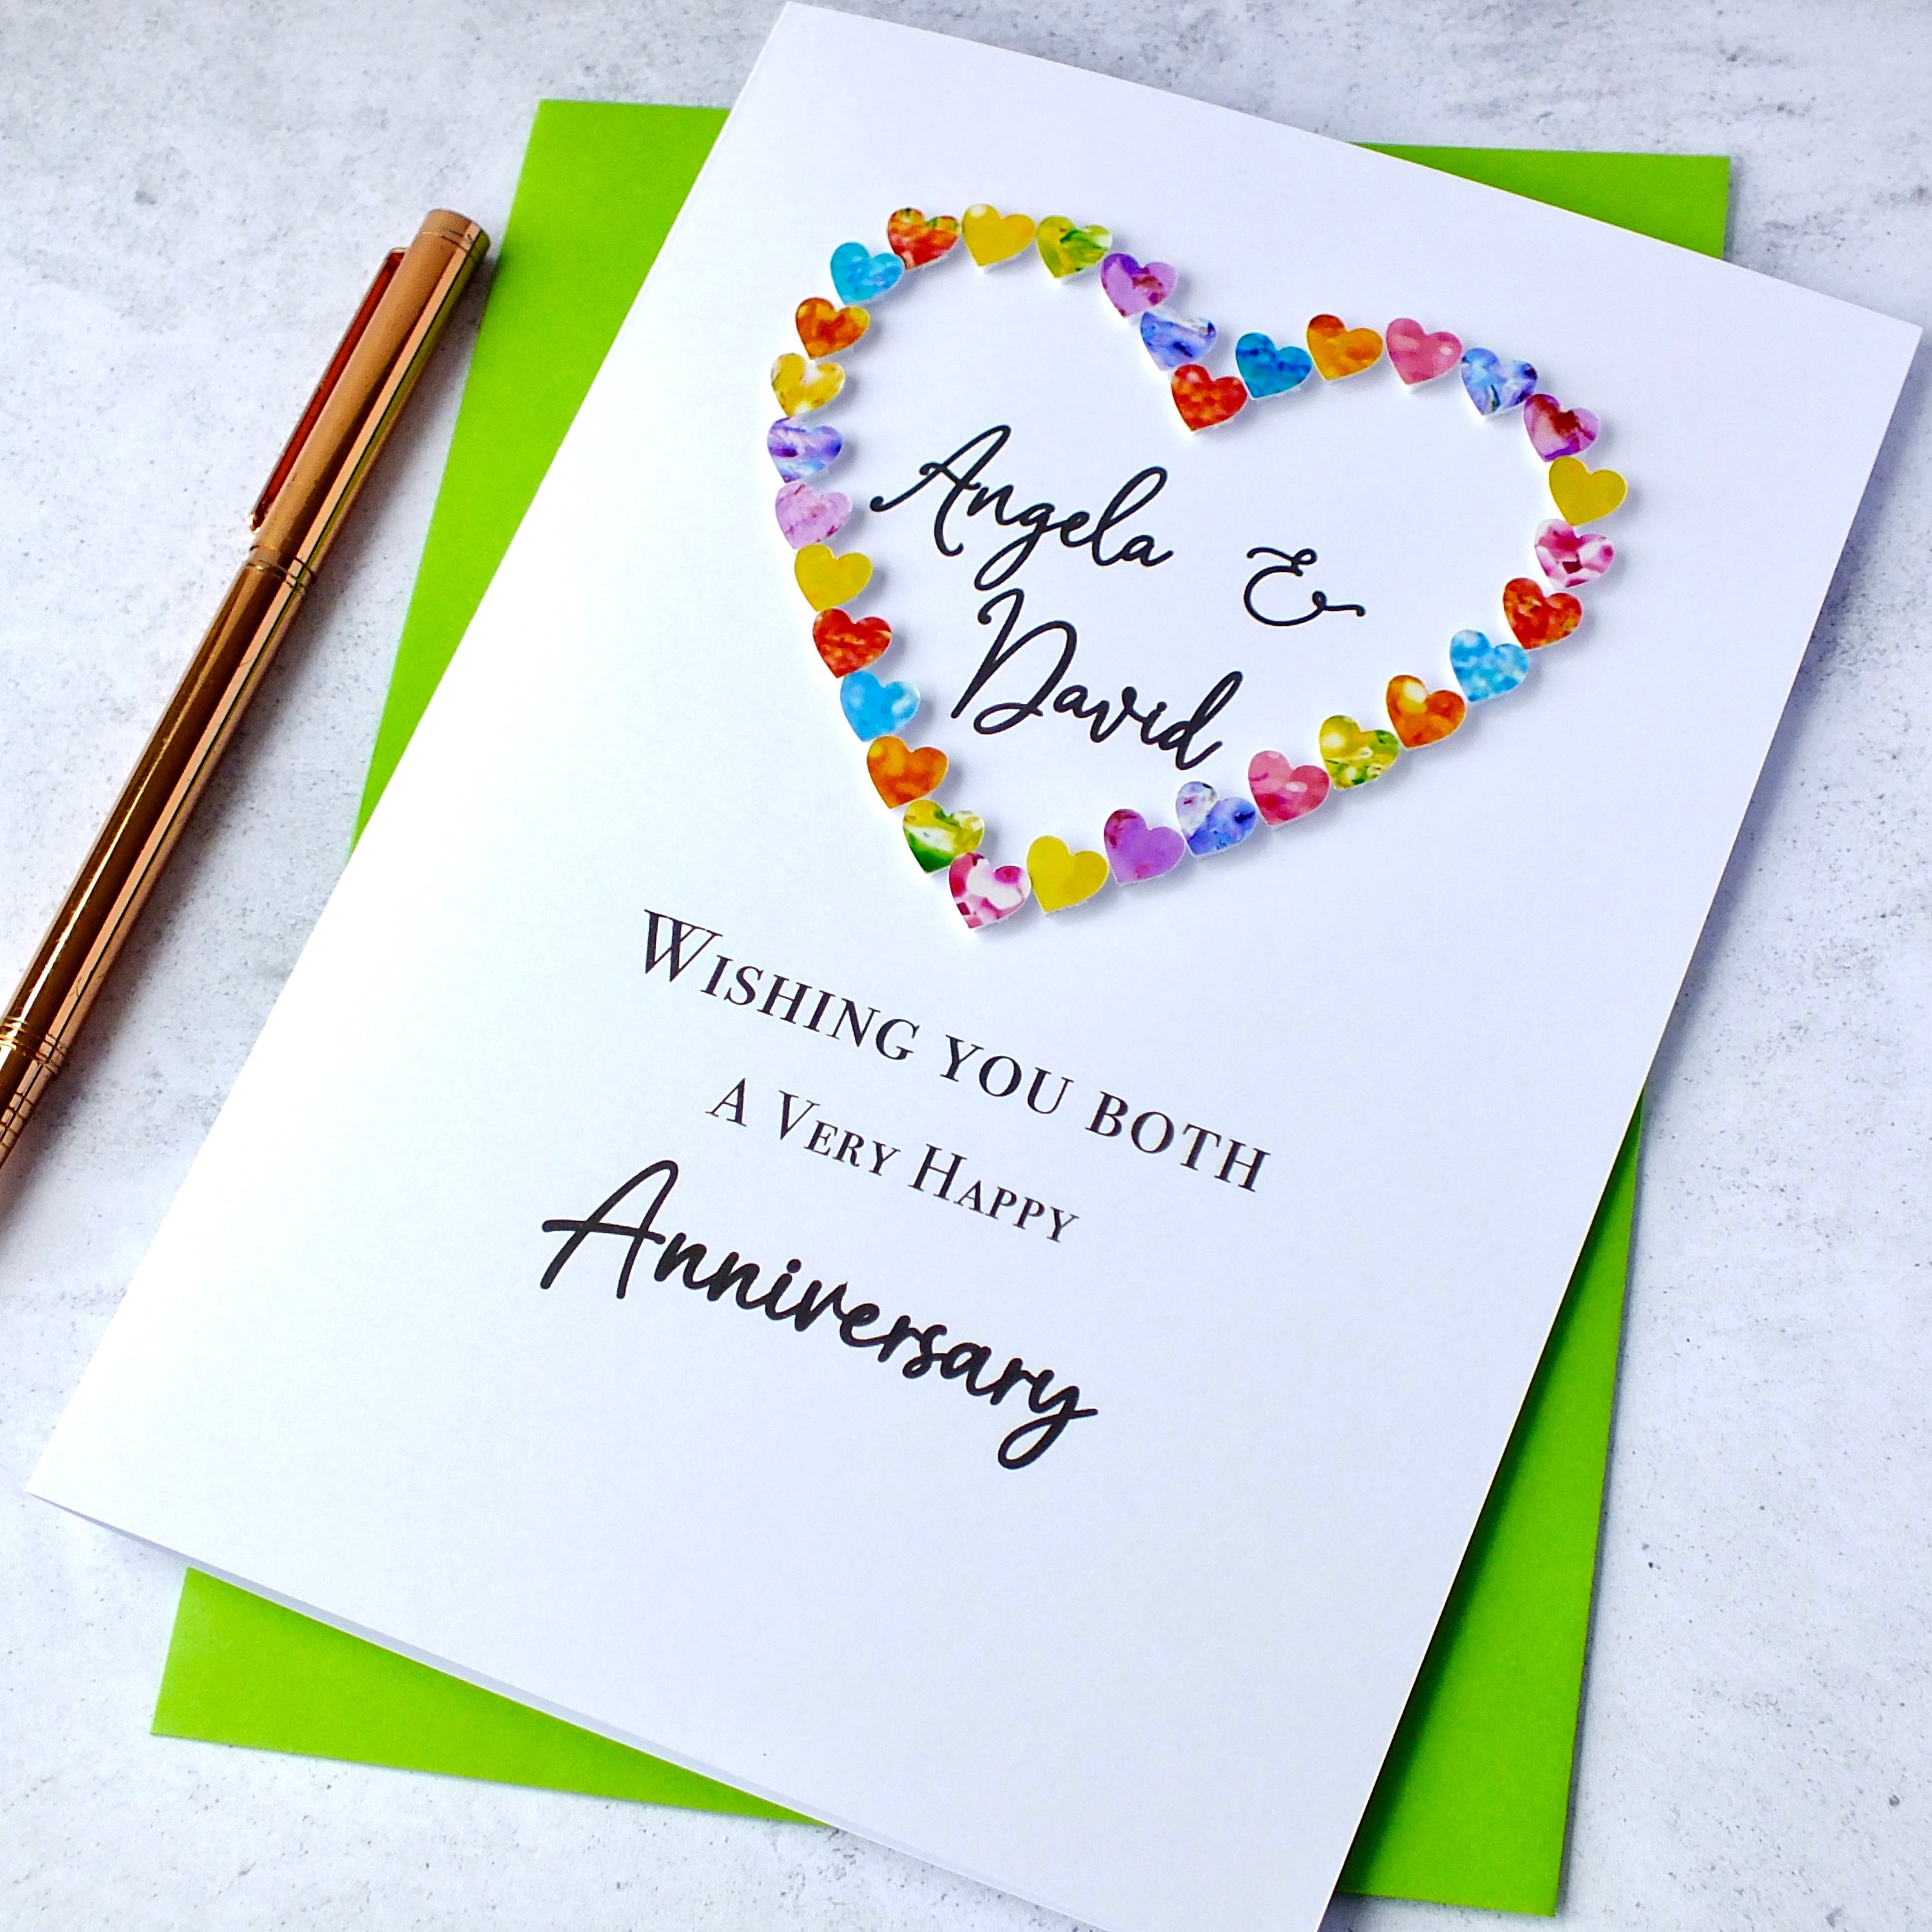 Angela &
David
WISHING YOU BOTH
A VERY HAPPY
Anniversary